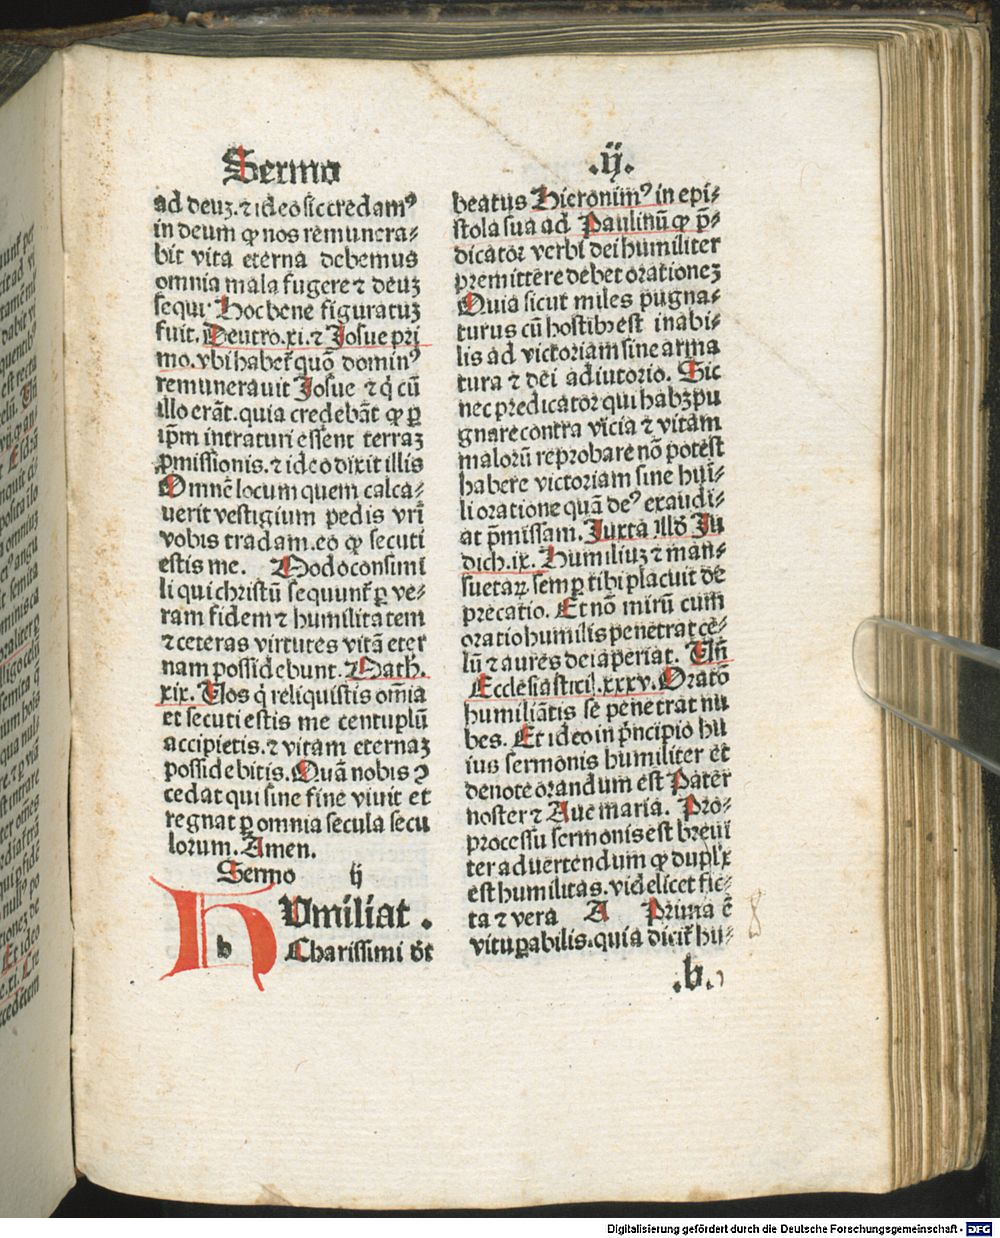 Sermo .ij.
ad deuꝫ. ⁊ ideo sic credamꝰ
in deum ꝙ nos remunera⸗
bit vita eterna debemus
omnia mala fugere ⁊ deuꝫ
sequi· Hoc bene figuratuꝫ
fuit. Deutro. xi. ⁊ Josue pri
mo. vbi habet̄ quō dominꝰ
remunerauit Josue ⁊ q̇ cū
illo erāt. quia credebāt ꝙ ꝑ
ip̄m intraturi essent terraꝫ
ꝓmissionis. ⁊ ideo dixit illis
Omnē locum quem calca⸗
uerit vestigium pedis vr̄i
vobis tradam. eo ꝙ secuti
estis me. Modo consimi
li qui christū sequunt̄ ꝑ ve⸗
ram fidem ⁊ humilitatem
⁊ ceteras virtutes vitā eter
nam possidebunt. Math.
xix. Uos q̇ reliquistis om̄ia
et secuti estis me centuplū
accipietis. ⁊ vitam eternaꝫ
possidebitis. Quā nobis ↄ
cedat qui sine fine viuit et
regnat ꝑ omnia secula secu
lorum. Amen.
Sermo ij
HUmiliat .
h Charissimi dt̄
beatus Hieronimꝰ in epi⸗
stola sua ad Paulinū ꝙ p̄⸗
dicator verbi dei humiliter
premittere debet orationeꝫ
Quia sicut miles pugna⸗
turus cū hostibꝫ est inabi⸗
lis ad victoriam sine arma
tura ⁊ dei adiutorio. Sic
nec predicator qui habꝫ pu
gnare contra vicia ⁊ vitam
malorū reprobare nō potest
habere victoriam sine hūi⸗
li oratione quā deꝰ exaudi⸗
at p̄missam. Juxta illđ Ju
dich. ix. Humiliuꝫ ⁊ man⸗
suetaꝝ semꝑ tibi placuit de
precatio. Et nō mirū cum
oratio humilis penetrat ce⸗
lū ⁊ aures dei aperiat. Un̄
Ecclesiastici. xxxv. Oratō
humiliātis se penetrat nu
bes. Et ideo in pn̄cipio hu
ius sermonis humiliter et
deuote orandum est Pater
noster ⁊ Aue maria. Pro⸗
processu sermonis est breui
ter aduertendum ꝙ duplex
est humilitas. videlicet fic⸗
ta ⁊ vera A Prima ē
vituꝑabilis. quia dicit̄ hu⸗
.b.
8
Digitalisierung gefördert durch die Deutsche Forschungsgemeinschaft - DFG